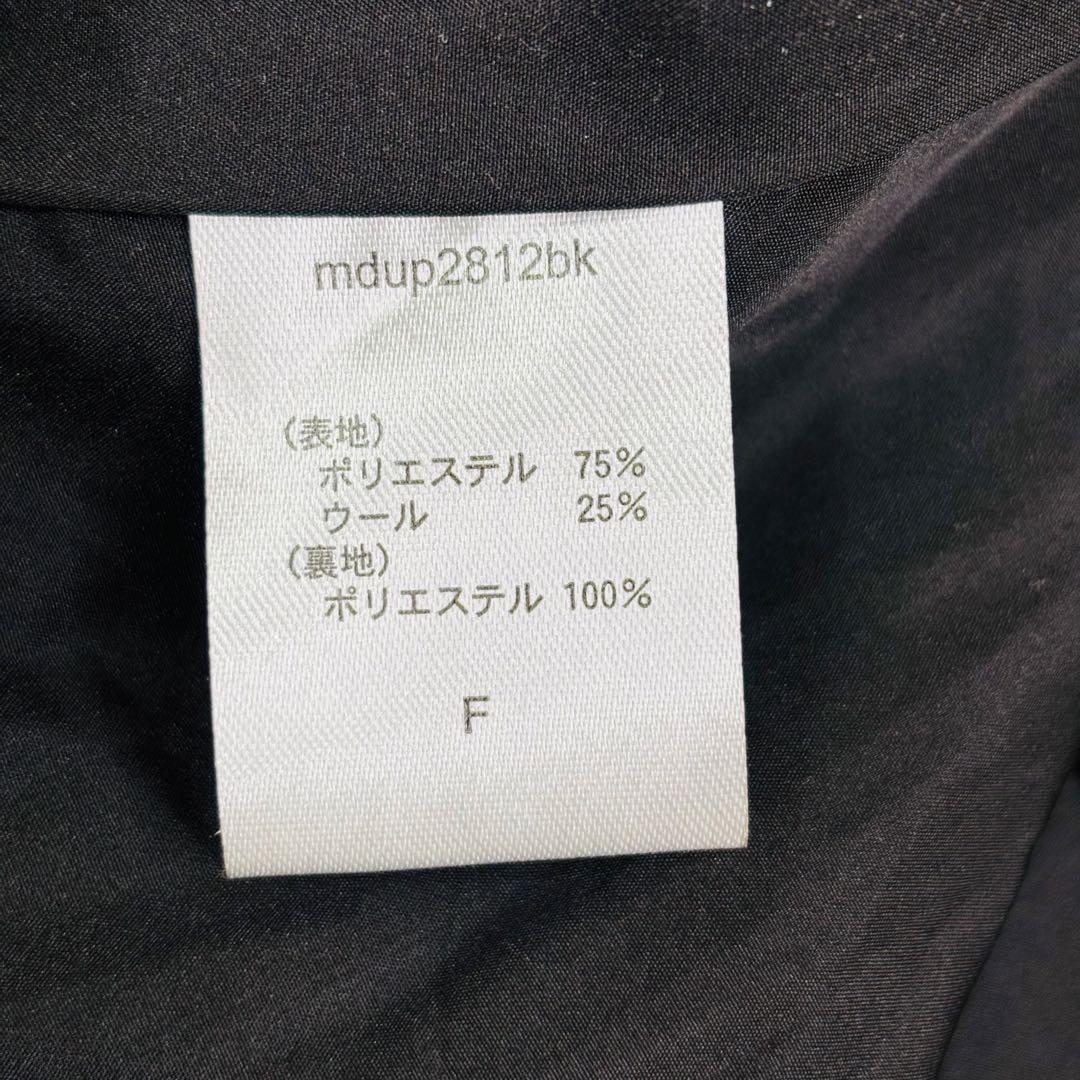 mdup2812bk
(表地)
ポリエステル 75%
ウール 25%
(裏地)
ポリエステル 100%
F